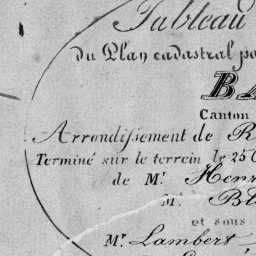 Tableau
du Plan cadastral
BA
Canton
Arrondissement de R
Terminé sur le terrein le 25
de Mr. Henr
Mr. Bl
et sous
Mr. Lambert